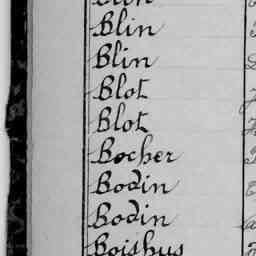 Blin
Blin
Blin
Blot
Blot
Bocher
Bodin
Bodin
Boishus